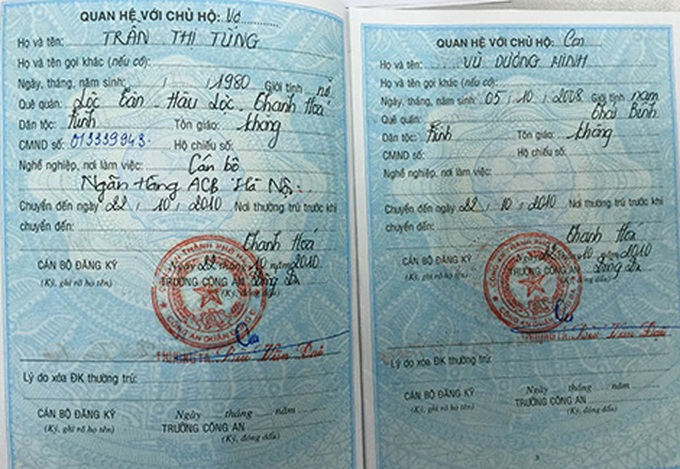 QUAN HỆ VỚI CHỦ HỘ: Vợ
Họ và tên: TRẦN THỊ TÙNG
Họ và tên gọi khác (nếu có):
Ngày, tháng, năm sinh: / / 1980 Giới tính: nữ
Quê quán: Lộc Tân - Hậu Lộc - Thanh Hoá
Dân tộc: Kinh Tôn giáo: không
CMND số: 013339943 Hộ chiếu số:
Nghề nghiệp, nơi làm việc: Cán bộ
Ngân Hàng ACB Hà Nội
Chuyển đến ngày 22 / 10 / 2010 Nơi thường trú trước khi
chuyển đến:
Thanh Hoá
Ngày 22 tháng 10 năm 2010
CÁN BỘ ĐĂNG KÝ TRƯỞNG CÔNG AN Đống Đa
(Ký, ghi rõ họ tên) (Ký, đóng dấu)
CÔNG AN QUẬN
Lý do xóa ĐK thường trú:
Ngày tháng năm
CÁN BỘ ĐĂNG KÝ TRƯỞNG CÔNG AN
(Ký, ghi rõ họ tên) (Ký, đóng dấu)
QUAN HỆ VỚI CHỦ HỘ: Con
Họ và tên: VŨ DƯƠNG MINH
Họ và tên gọi khác (nếu có):
Ngày, tháng, năm sinh: 05 / 10 / 2008 Giới tính: nam
Quê quán: Thái Bình
Dân tộc: Kinh Tôn giáo: không
CMND số: Hộ chiếu số:
Nghề nghiệp, nơi làm việc:
Chuyển đến ngày 22 / 10 / 2010 Nơi thường trú trước khi
chuyển đến:
Thanh Hoá
10 năm 2010
CÁN BỘ ĐĂNG KÝ TRƯỞNG CÔNG AN Đống Đa
(Ký, ghi rõ họ tên) (Ký, đóng dấu)
Lý do xóa ĐK thường trú:
Ngày tháng năm
CÁN BỘ ĐĂNG KÝ TRƯỞNG CÔNG AN
(Ký, ghi rõ họ tên) (Ký, đóng dấu)
3